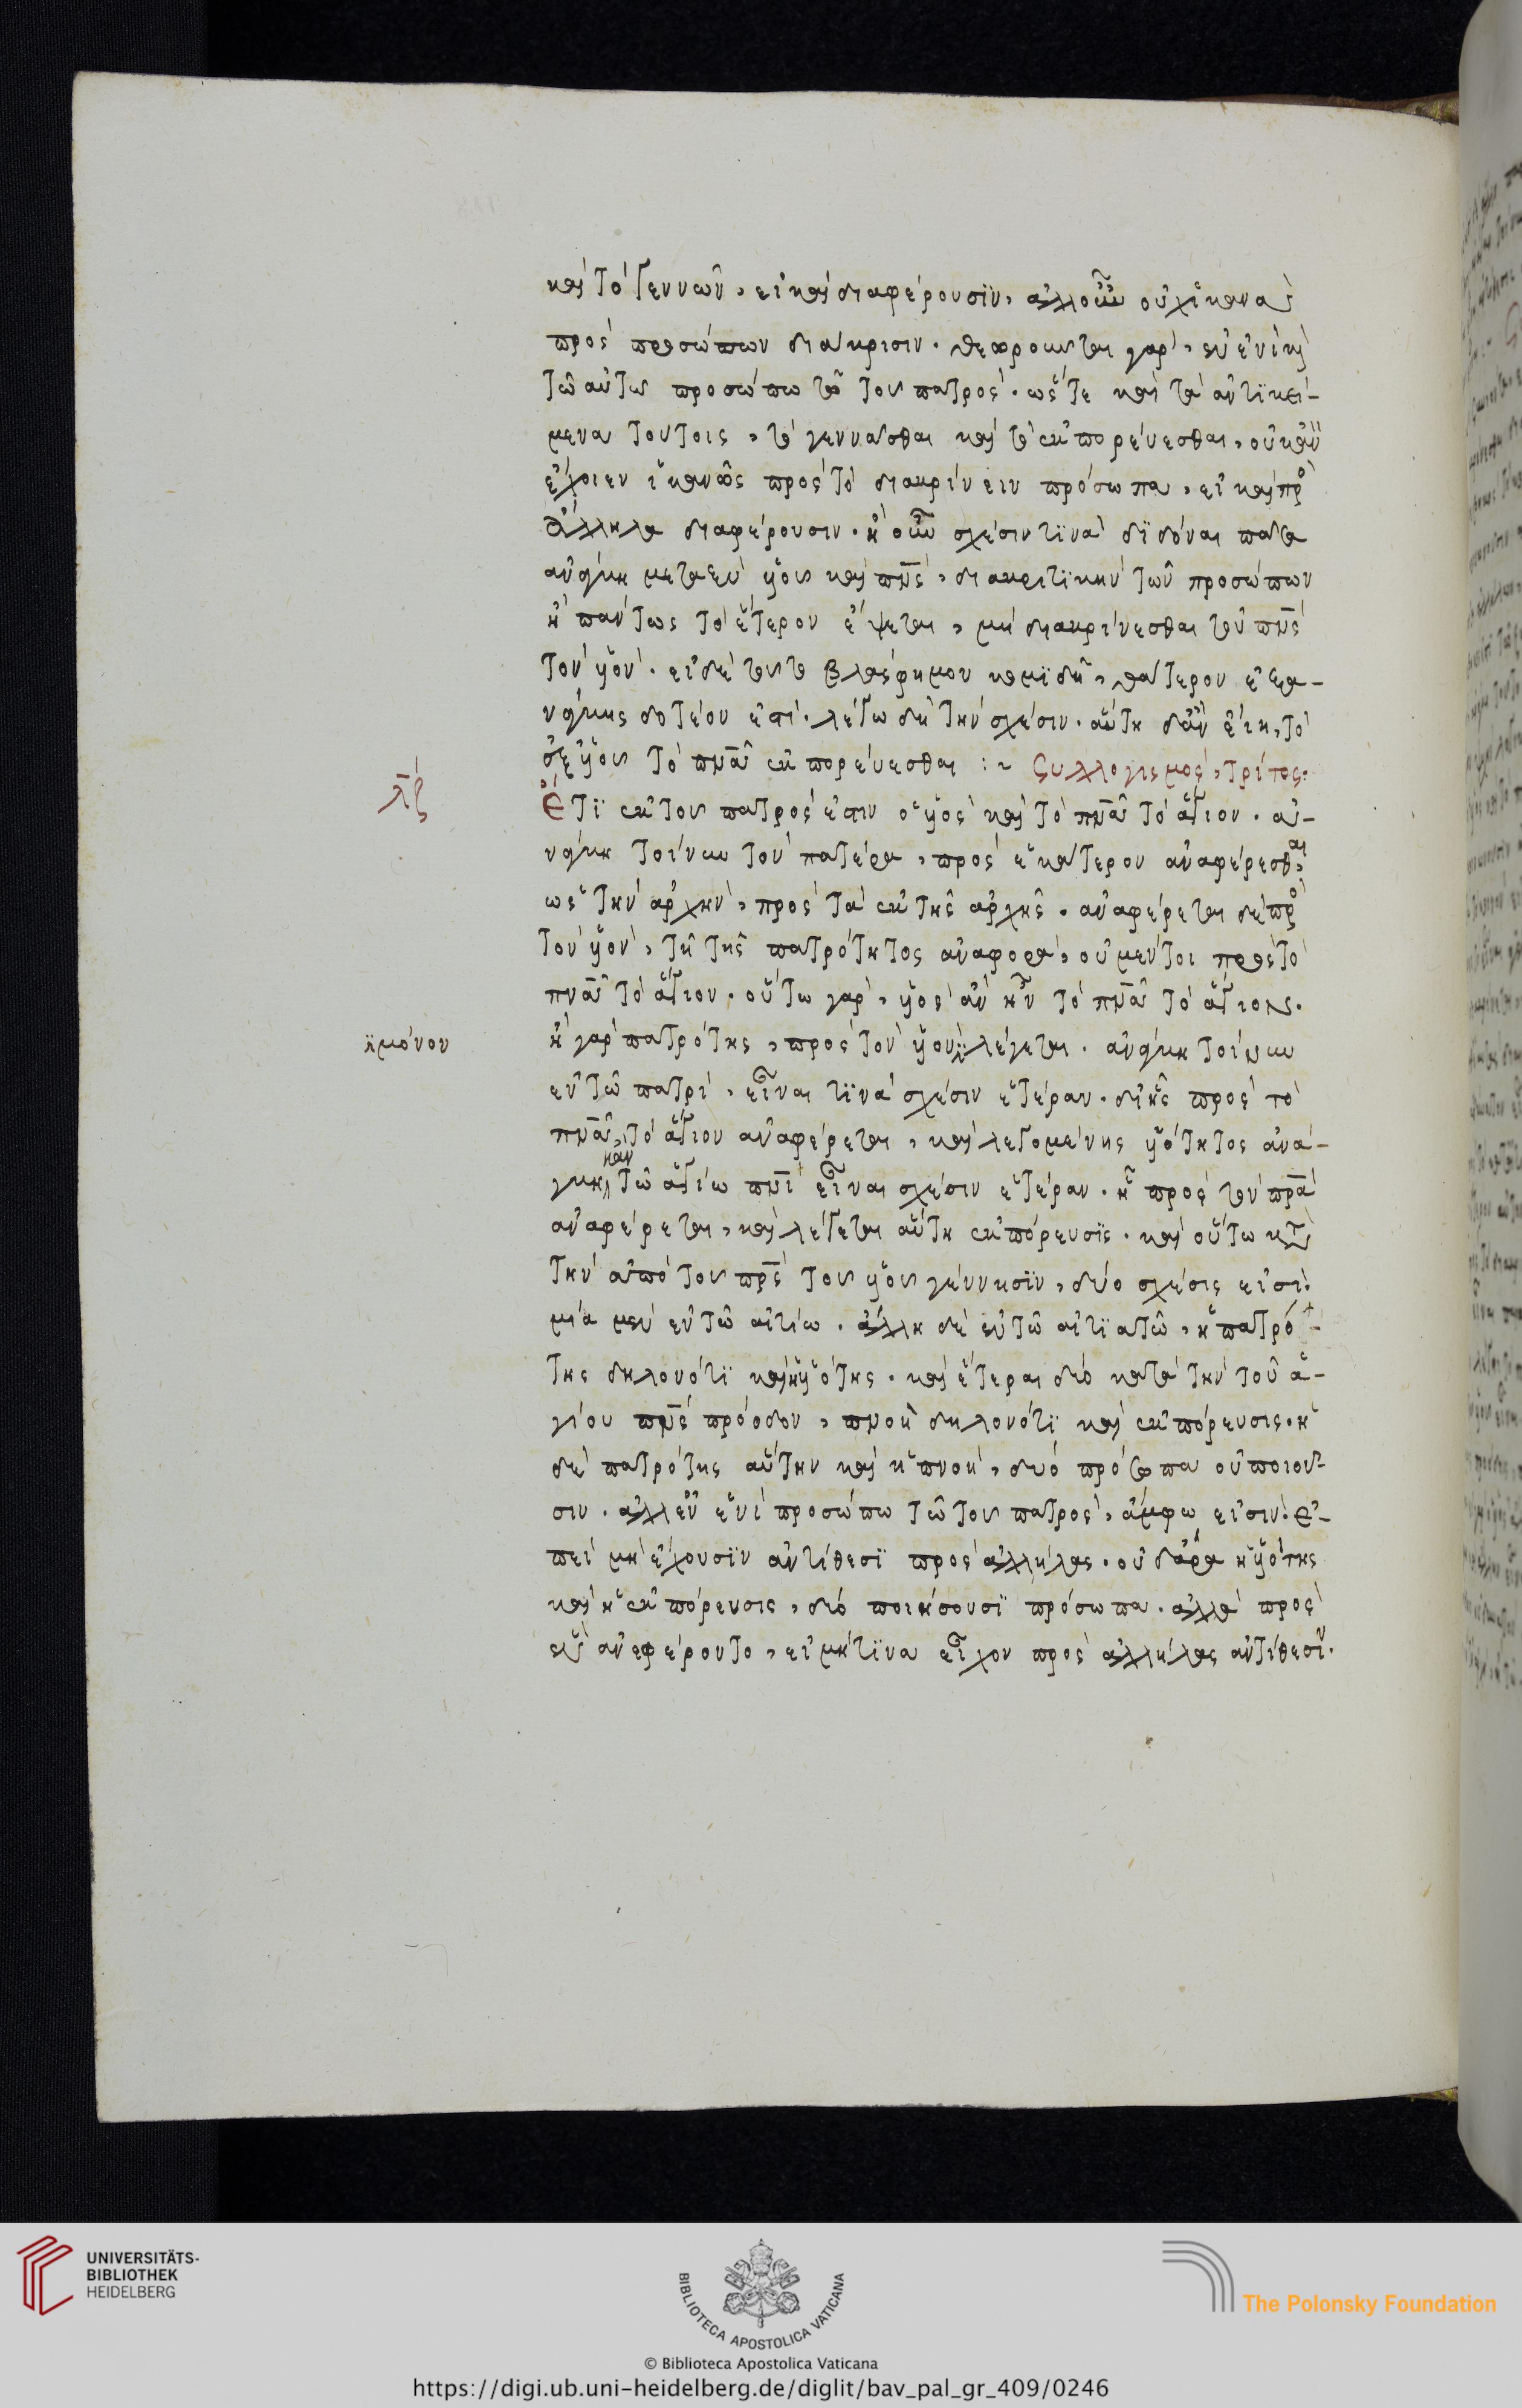 καὶ τὸ γεννῶν, εἰ καὶ διαφέρουσιν, ἀλλ' οὖν οὐχ ἱκανὰ
πρὸς προσώπων διάκρισιν. θεωροῦνται γὰρ, ἐν ἑνὶ καὶ
τῶ αὐτῶ προσώπω τῶ τοῦ πατρός. ὥστε καὶ τὰ ἀντικεί-
μενα τούτοις, τὸ γεννᾶσθαι καὶ τὸ ἐκπορεύεσθαι, οὐκ ἂν
ἔχοιεν ἱκανῶς πρὸς τὸ διακρίνειν πρόσωπα, εἰ καὶ πρὸς
ἄλληλα διαφέρουσιν. ἢ οὖν σχέσιν τινὰ διδόναι πᾶσα
ἀνάγκη μεταξὺ υἱοῦ καὶ πνς, διακριτικὴν τῶν προσώπων
ἢ πάντως τὸ ἕτερον ἕψεται, μὴ διακρίνεσθαι τοῦ πνς
τὸν υἱόν. εἰ δὲ τοῦτο βλάσφημον κομιδῆ, θάτερον ἐξ ἀ-
νάγκης δοτέον ἐστί. λέγω δὴ τὴν σχέσιν. αὕτη δ' ἂν εἴη, τὸ
ἐξ υἱοῦ τὸ πνα ἐκπορεύεσθαι :~ Συλλογισμὸς, τρίτος.
λζ
Ἔτι ἐκ τοῦ πατρός ἐστιν ὁ υἱὸς καὶ τὸ πνα τὸ ἅγιον. ἀ-
νάγκη τοίνυν τὸν πατέρα, πρὸς ἑκάτερον ἀναφέρεσθαι,
ὡς τὴν ἀρχὴν, πρὸς τὰ ἐκ τῆς ἀρχῆς. ἀναφέρεται δὲ πρὸς
τὸν υἱὸν, τῆ τῆς πατρότητος ἀναφορᾶ, οὐ μέντοι πρὸς τὸ
πνα τὸ ἅγιον. οὕτω γὰρ, υἱὸς ἂν ἦν τὸ πνα τὸ ἅγιον.
μόνον
ἡ γὰρ πατρότης, πρὸς τὸν υἱὸν λέγεται. ἀνάγκη τοίνυν
ἐν τῶ πατρὶ, εἶναι τινὰ σχέσιν ἑτέραν. δι' ἧς πρὸς τὸ
πνα τὸ ἅγιον ἀναφέρεται, καὶ λεγομένης υἱότητος ἀνά-
γκη, κἀν τῶ ἁγίω πνι εἶναι σχέσιν ἑτέραν. ἧ πρὸς τὸν πρα
ἀναφέρεται, καὶ λέγεται αὕτη ἐκπόρευσις. καὶ οὕτω κατὰ
τὴν ἀπὸ τοῦ πρς τοῦ υἱοῦ γέννησιν, δύο σχέσις εἰσί.
μία μὲν ἐν τῶ αἰτίω. ἄλλη δὲ ἐν τῶ αἰτιατῶ, ἡ πατρό-
της δηλονότι καὶ ἡ υἱότης. καὶ ἕτεραι δύο κατὰ τὴν τοῦ ἁ-
γίου πνς πρόοδον, πνοὴ δηλονότι καὶ ἐκπόρευσις. ἡ
δὲ πατρότης αὕτην καὶ ἡ πνοὴ, δύο πρόσωπα οὐ ποιοῦ-
σιν. ἀλλ' ἐν ἑνὶ προσώπω τῶ τοῦ πατρὸς, ἄμφω εἰσίν. ἐ-
πεὶ μὴ ἔχουσιν ἀντίθεσι πρὸς ἀλλήλας. οὐδ' ἄρα ἡ υἱότης
καὶ ἡ ἐκπόρευσις, δύο ποιήσουσι πρόσωπα. ἀλλὰ πρὸς
ἓν ἀνεφέροντο, εἰ μή τινα εἶχον πρὸς ἀλλήλας ἀντίθεσιν.
UNIVERSITÄTS-
BIBLIOTHEK
HEIDELBERG
BIBLIOTECA APOSTOLICA VATICANA
The Polonsky Foundation
© Biblioteca Apostolica Vaticana
https://digi.ub.uni-heidelberg.de/diglit/bav_pal_gr_409/0246